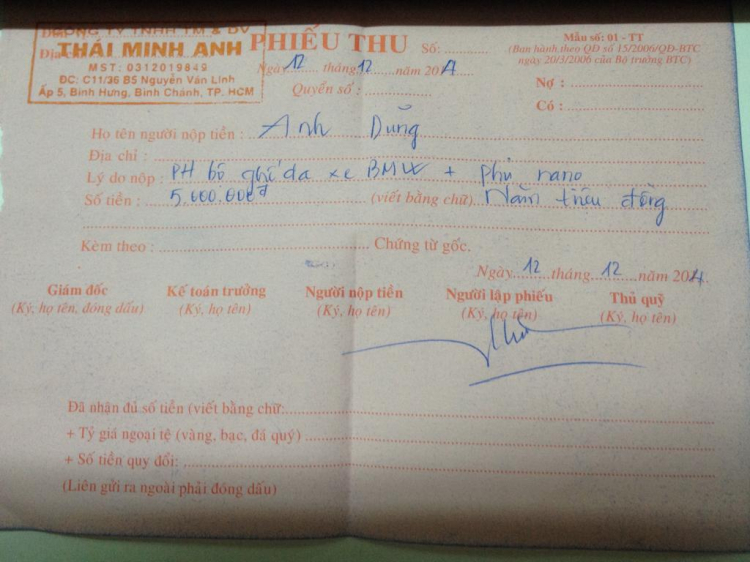 CÔNG TY TNHH TM & DV
THÁI MINH ANH
MST: 0312019849
ĐC: C11/36 BS Nguyễn Văn Linh
Ấp 5, Bình Hưng, Bình Chánh, TP. HCM
PHIẾU THU
Số: ..........
Ngày 12 tháng 12 năm 201
Quyển số : ..........
Mẫu số: 01 - TT
(Ban hành theo QĐ số 15/2006/QĐ-BTC
ngày 20/3/2006 của Bộ trưởng BTC)
Nợ : ..........
Có : ..........
Họ tên người nộp tiền : Anh Dũng
Địa chỉ : ..........
Lý do nộp : PH bộ ghế da xe BMW + phủ nano
Số tiền : 5.000.000đ (viết bằng chữ) Năm triệu đồng
Kèm theo : .......... Chứng từ gốc.
Ngày 12 tháng 12 năm 201
Giám đốc Kế toán trưởng Người nộp tiền Người lập phiếu Thủ quỹ
(Ký, họ tên, đóng dấu) (Ký, họ tên) (Ký, họ tên) (Ký, họ tên) (Ký, họ tên)
Đã nhận đủ số tiền (viết bằng chữ: ..........
+ Tỷ giá ngoại tệ (vàng, bạc, đá quý) ..........
+ Số tiền quy đổi: ..........
(Liên gửi ra ngoài phải đóng dấu)